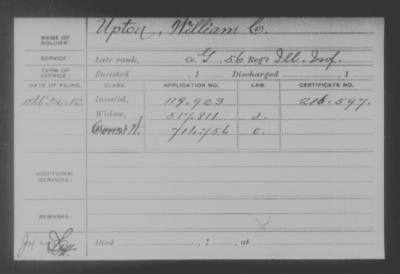 NAME OF SOLDIER: Upton, William C.
SERVICE: Late rank, Co. G, 56 Reg't Ill. Inf.
TERM OF SERVICE: Enlisted , 1 Discharged , 1
DATE OF FILING. CLASS. APPLICATION NO. LAW. CERTIFICATE NO.
Invalid, 119.923 216.597.
Widow, 517.811
716.756
ADDITIONAL SERVICES:
REMARKS:
Died , 1 , at